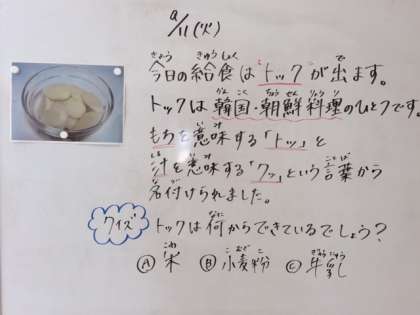 9/11(火)
今日の給食は"トック"が出ます。
トックは韓国・朝鮮料理のひとつです。
もちを意味する「トッ」と
汁を意味する「クッ」という言葉から
名付けられました。
クイズ トックは何からできているでしょう?
Ⓐ 米 Ⓑ 小麦粉 Ⓒ 牛乳